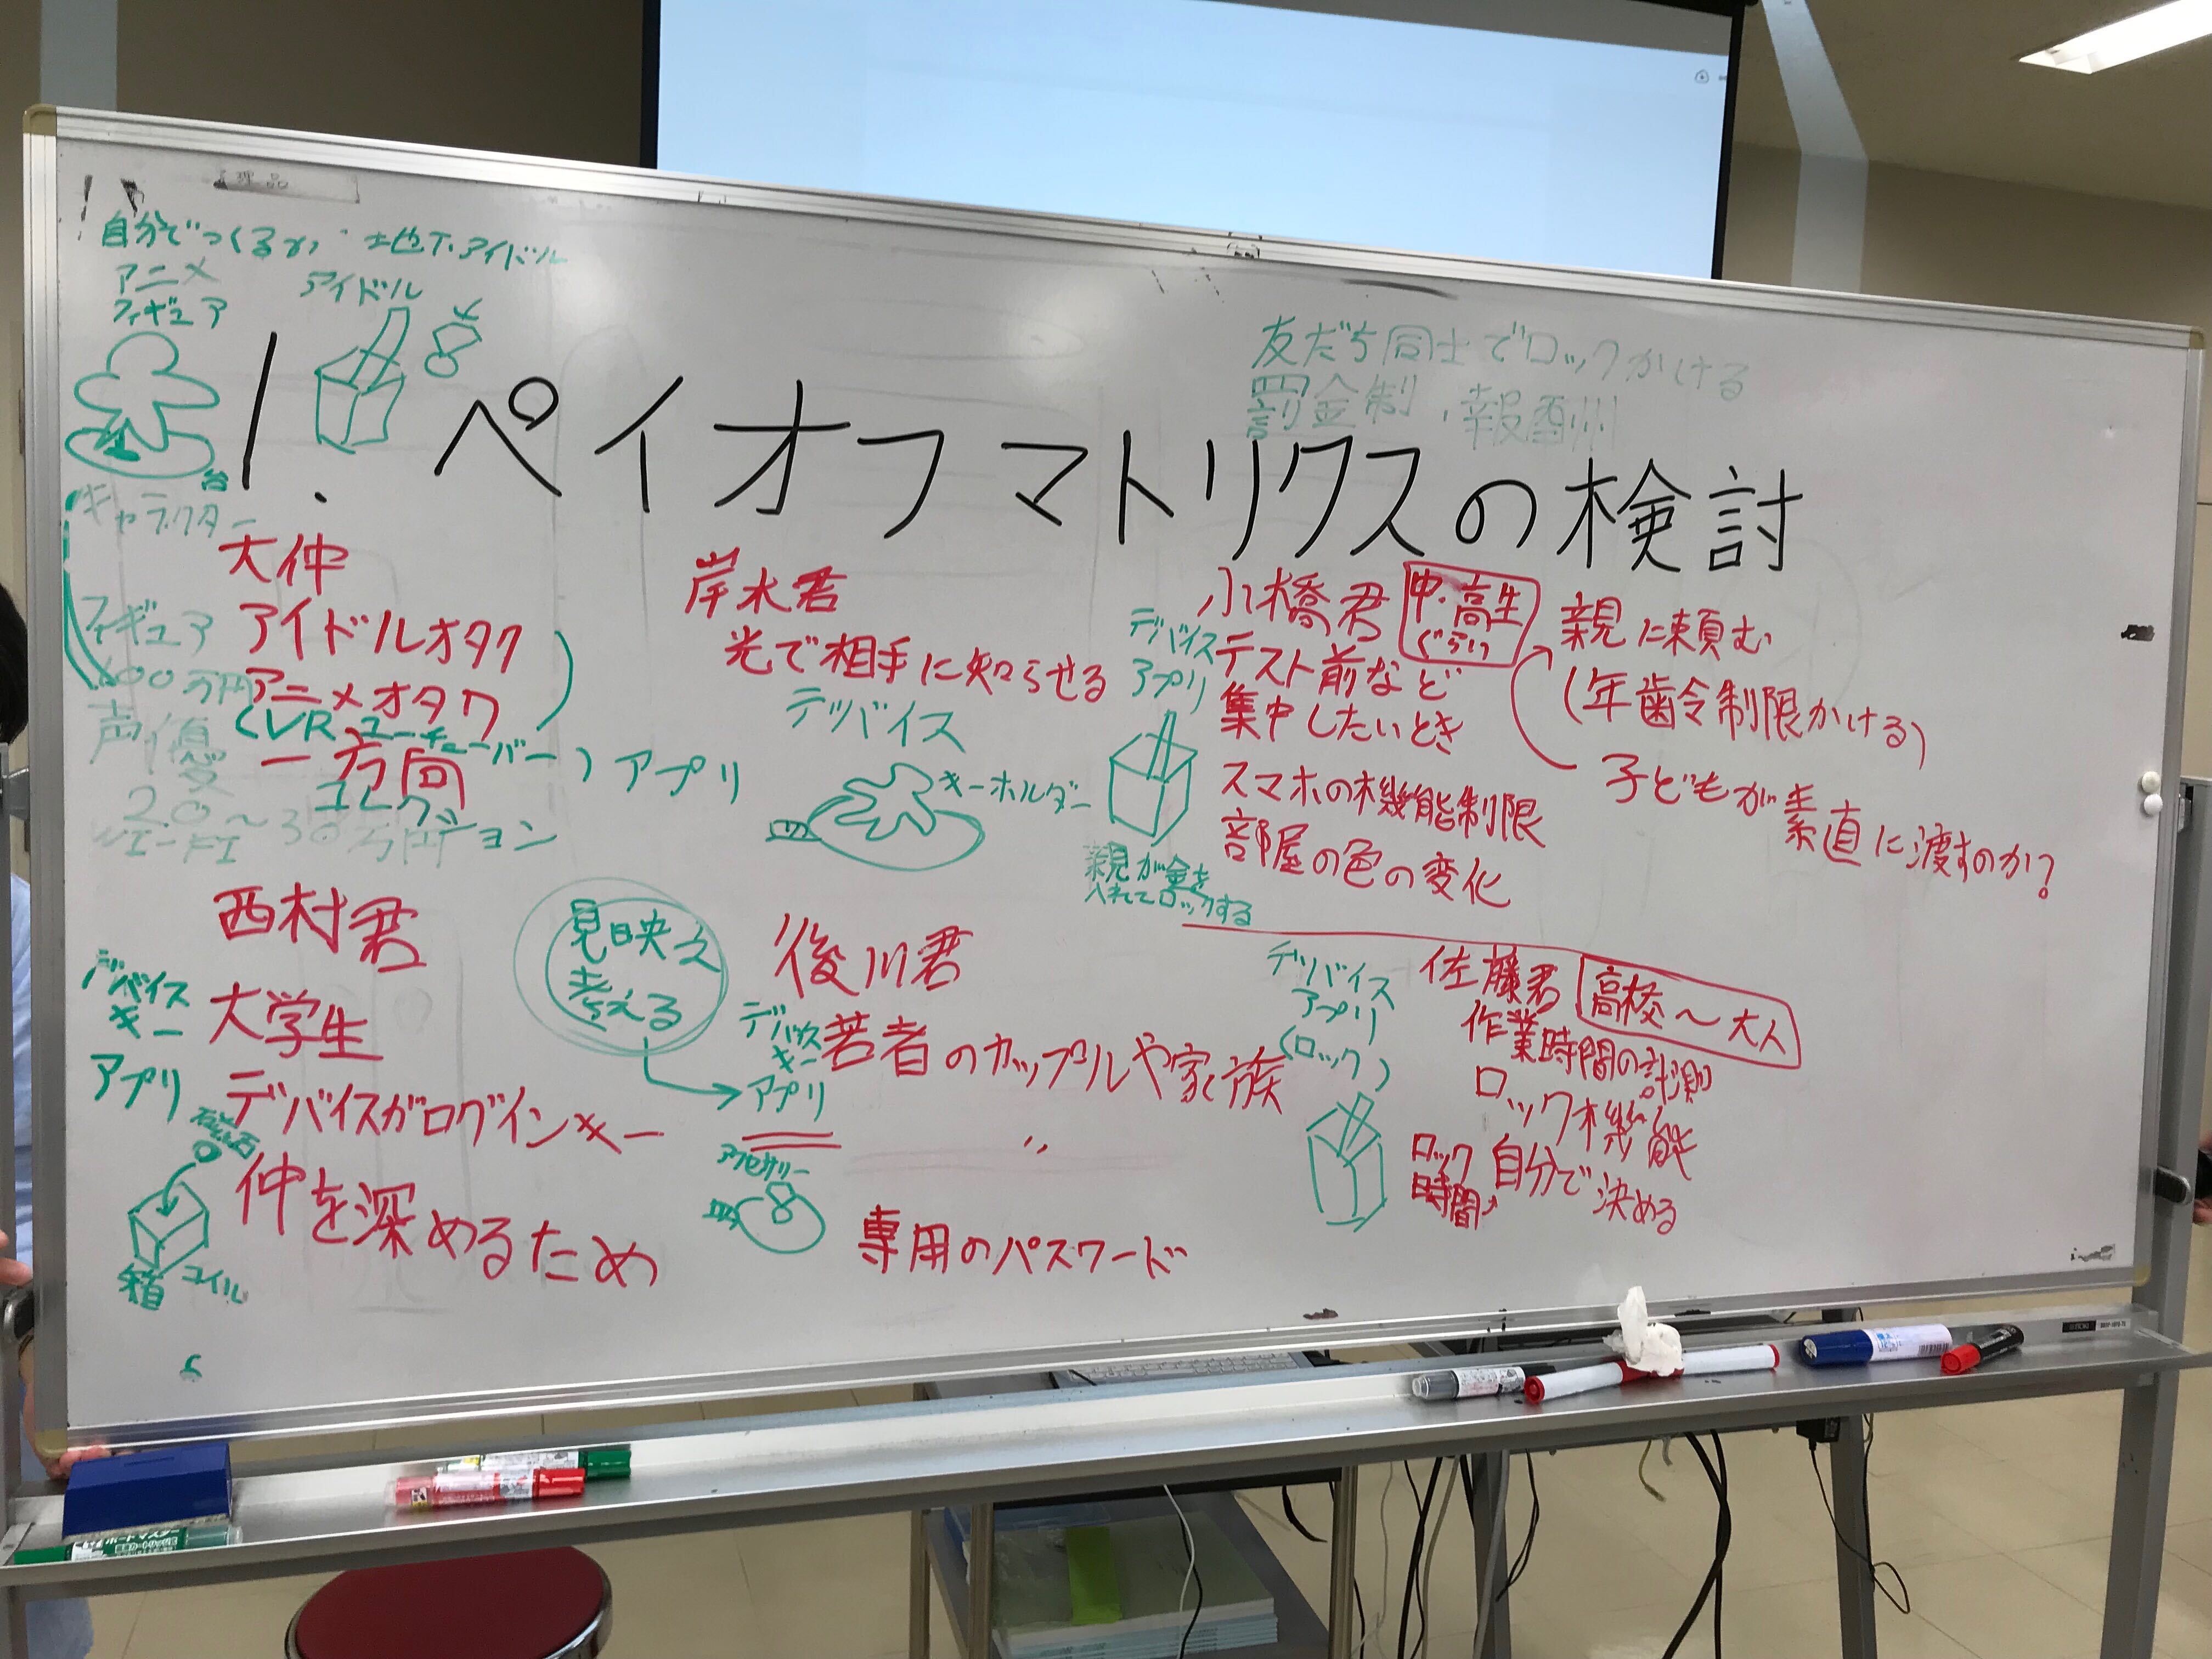 自分でつくるか 地下アイドル
アニメ
フィギュア
アイドル
台
キャラクター
1. ペイオフマトリクスの検討
友だち同士でロックかける
罰金制、報酬
大仲
アイドルオタク
アニメオタク
(VRユーチューバー)
一方向
コレクション
アプリ
フィギュア
600万円
声優
2.0~30万円
岸水君
光で相手に知らせる
デバイス
キーホルダー
小橋君
中・高生
ぐらい
デバイス
アプリ
テスト前など
集中したいとき
スマホの機能制限
部屋の色の変化
親が鍵を
入れてロックする
親に頼む
(年齢制限かける)
子どもが素直に渡すのか?
西村君
デバイス
キー
アプリ
大学生
デバイスがログインキー
仲を深めるため
磁石
箱
コイル
見映え
考える
後川君
デバイス
キー
アプリ
若者のカップルや家族
〃
アクセサリー
専用のパスワード
佐藤君
高校~大人
デバイス
アプリ
(ロック)
作業時間の計測
ロック機能
ロック
時間
自分で決める